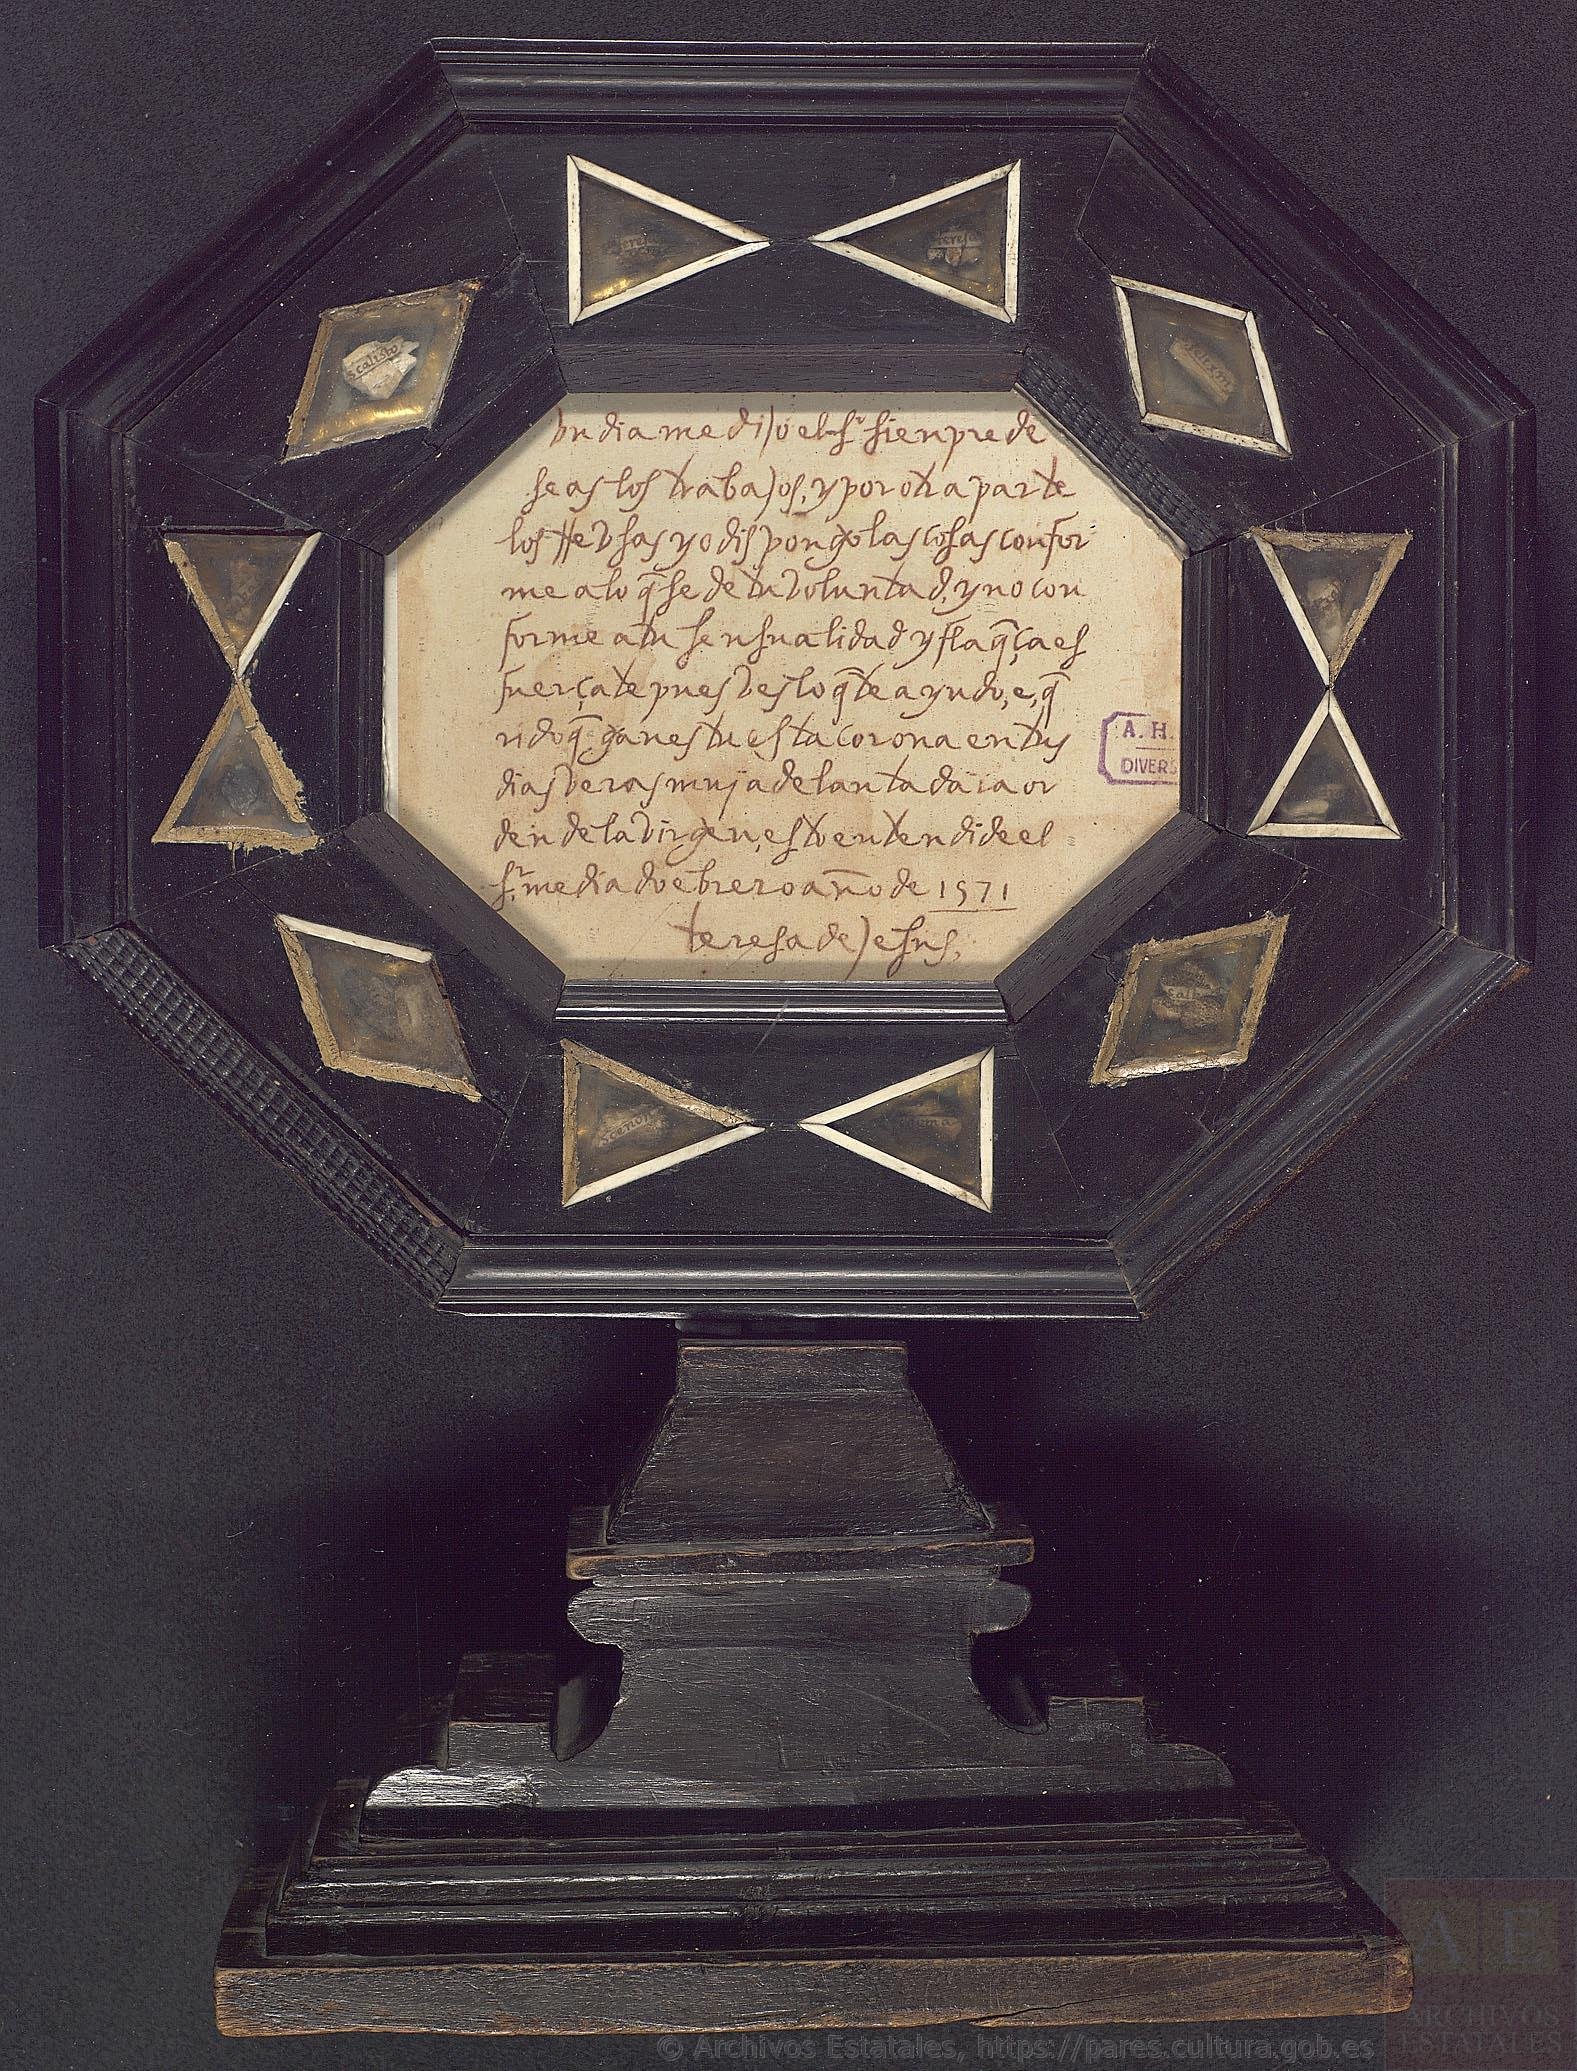 Scalisto
vn dia me dijo el sr sienpre de
seas los trabajos, y por otra parte
los rrehusas yo dispongo las cosas confor
me a lo q̃ se de tu voluntad, y no con
forme a tu sensualidad y flaq̃ça es
fuerçate pues ves lo q̃ te ayudo, e, q̃
rido q̃ ganes tu esta corona en tus
dias veras muy adelantada la or
den de la virgen, esto entendi de el
sr mediado ebrero año de 1571
teresa de Jesus,
A. H.
DIVERS
© Archivos Estatales, https://pares.cultura.gob.es
A E
ARCHIVOS
ESTATALES